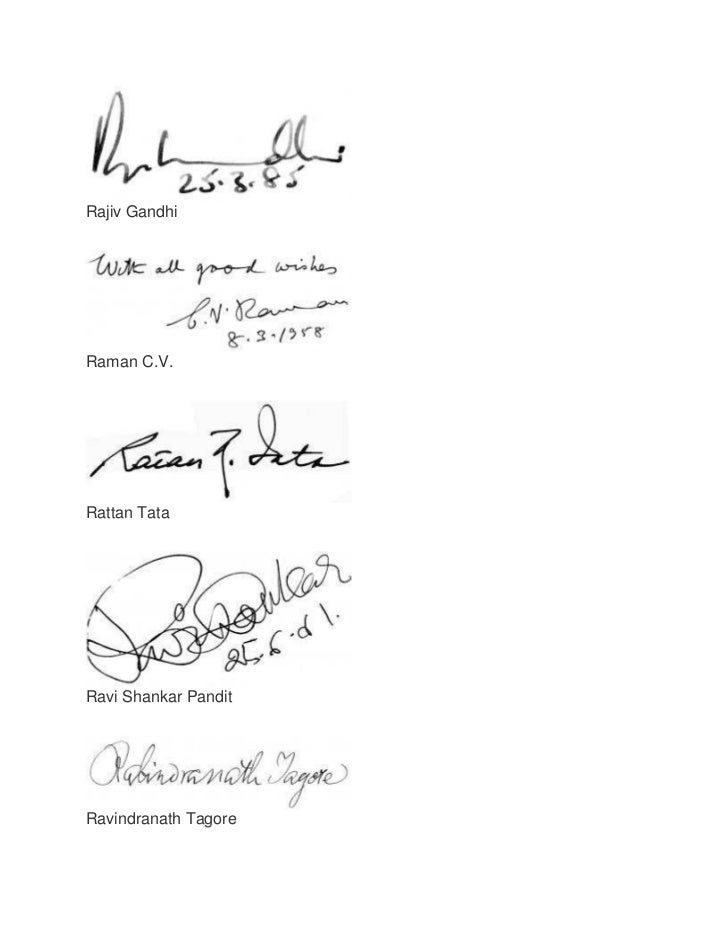 25.3.85
Rajiv Gandhi
With all good wishes
C.V. Raman
8.3.1958
Raman C.V.
Ratan N. Tata
Rattan Tata
Ravi Shankar
25.6.61.
Ravi Shankar Pandit
Rabindranath Tagore
Ravindranath Tagore